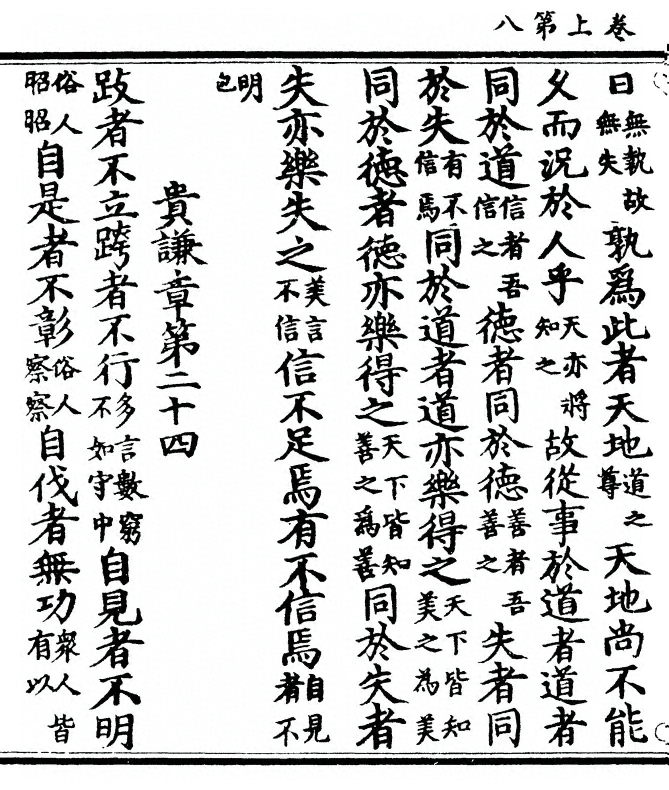 卷上第八
日無執故無失孰爲此者天地道之尊天地尚不能
久而況於人乎天亦將知之故從事於道者道者
同於道信者吾信之德者同於德善者吾善之失者同
於失有不信焉同於道者道亦樂得之天下皆知美之為美
同於德者德亦樂得之天下皆知善之爲善同於失者
失亦樂失之美言不信信不足焉有不信焉自見者不
明也
貴謙章第二十四
跂者不立跨者不行多言數窮不如守中自見者不明
俗人昭昭自是者不彰俗人察察自伐者無功衆人皆有以